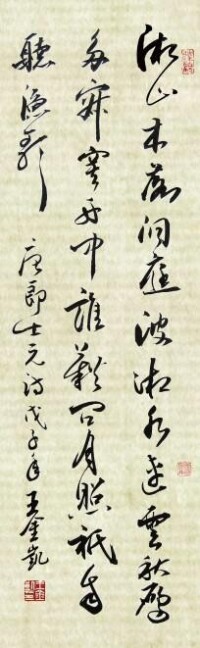 湘山木落洞庭波湘水连雲秋雁
多寂寞舟中誰藉问月照祇自
聽漁歌 唐郎士元诗戊子年王金凱